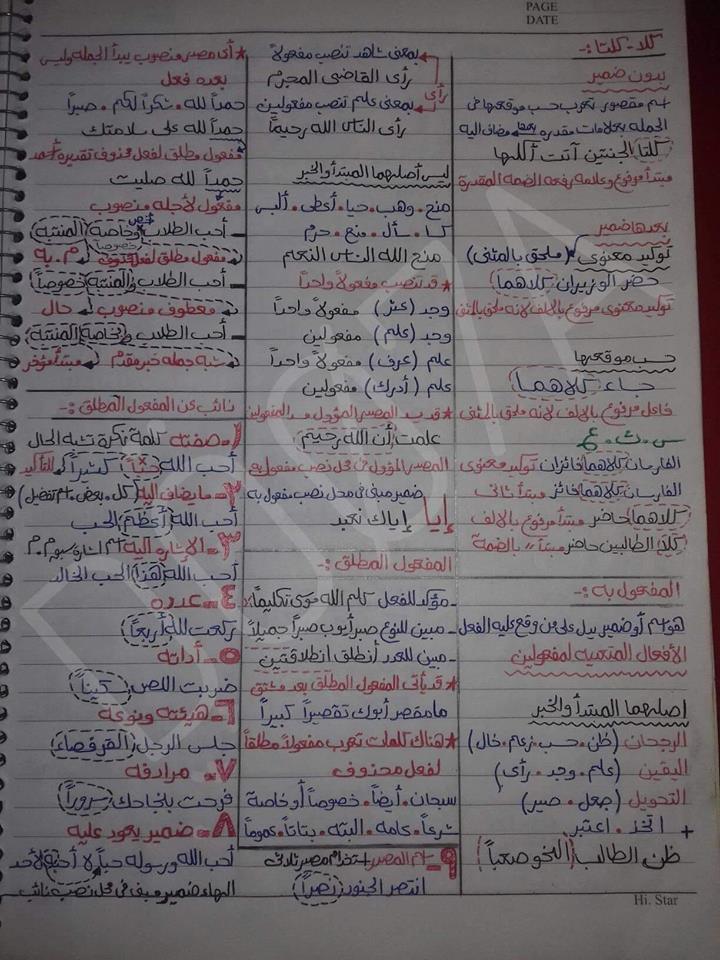 PAGE
DATE
كلا - كلتا :-
بدون ضمير
اسم مقصور يعرب حسب موقعها في
الجملة بعلامات مقدرة بعدها مضاف إليه
كلتا الجنتين آتت أكلها
مبتدأ مرفوع وعلامة رفعه الضمة المقدرة
بعدها ضمير
توكيد معنوى (ملحق بالمثنى)
حضر الوزيران كلاهما
توكيد معنوى مرفوع بالألف لأنه ملحق بالمثنى
حسب موقعها
جاء كلاهما
فاعل مرفوع بالألف لأنه ملحق بالمثنى
س . ك . ع
الفارسان كلاهما فائزان توكيد معنوى
الفارسان كلاهما فائز مبتدأ ثانى
كلاهما حاضر مبتدأ مرفوع بالألف
كلا الطالبين حاضر مبتدأ // بالضمة
المفعول به :-
هو اسم أو ضمير يدل على من وقع عليه الفعل
الأفعال المتعدية لمفعولين
أصلهما المبتدأ والخبر
الرجحان (ظن . حسب . زعم . خال)
اليقين (علم . وجد . رأى)
التحويل (جعل . صير)
+ اتخذ . اعتبر
ظن الطالب (النحو صعباً)
رأى
بمعنى شاهد تنصب مفعولاً
رأى القاضى المجرم
بمعنى علم تنصب مفعولين
رأى الناس الله رحيماً
ليس أصلهما المبتدأ والخبر
منح . وهب . حبا . أعطى . ألبس
كسا . سأل . منع . حرم
منح الله الناس النعم
* قد تنصب مفعولاً واحداً
وجد (عثر) مفعولاً واحداً
وجد (علم) مفعولين
علم (عرف) مفعولاً واحداً
علم (أدرك) مفعولين
* قد يسد المصدر المؤول مسد المفعولين
علمت أن الله رحيم
المصدر المؤول فى محل نصب مفعول به
إيا ضمير مبنى فى محل نصب مفعول به
إياك نعبد
المفعول المطلق :-
- مؤكد للفعل كلم الله موسى تكليماً
- مبين للنوع صبر أيوب صبراً جميلاً
- مبين للعدد انطلق انطلاقتين
* قد يأتى المفعول المطلق بعد مشتق
ما مقصر أبوك تقصيراً كبيراً
* هناك كلمات تعرب مفعولاً مطلقاً
لفعل محذوف
سبحان . أيضاً . خصوصاً أو خاصة
شرعاً . عامة . البتة . بتاتاً . عموماً
٩- اسم المصدر استخدام مصدر ثلاثى
انتصر الجنود نصراً
* أى مصدر منصوب يبدأ الجملة وليس
بعده فعل
حمداً لله . شكراً لكم . صبراً
حمداً لله على سلامتك
مفعول مطلق لفعل محذوف تقديره أحمد
حمداً لله صليت
مفعول لأجله منصوب
- أحب الطلاب وخاصة المنتبه
مفعول مطلق لفعل محذوف م . به
- أحب الطلاب والمنتبه خصوصاً
معطوف منصوب حال
- أحب الطلاب وبخاصة المنتبه
شبه جملة خبر مقدم مبتدأ مؤخر
نائب عن المفعول المطلق :-
١- صفته كلمة نكرة تشبه الحال
أحب الله حباً كثيراً للتأكيد
٢- ما يضاف إليه (كل . بعض . اسم تفضيل)
أحب الله أعظم الحب
٣- الإشارة إليه اسم إشارة
أحب الله هذا الحب الخالد
٤- عدده
ركعت لله أربعاً
٥- أداته
ضربت اللص سكيناً
٦- هيئته ونوعه
جلس الرجل القرفصاء
٧- مرادفه
فرحت بنجاحك سروراً
٨- ضمير يعود عليه
أحب الله ورسوله حباً لا أحبه لأحد
الهاء ضمير مبنى فى محل نصب نائب
Hi. Star